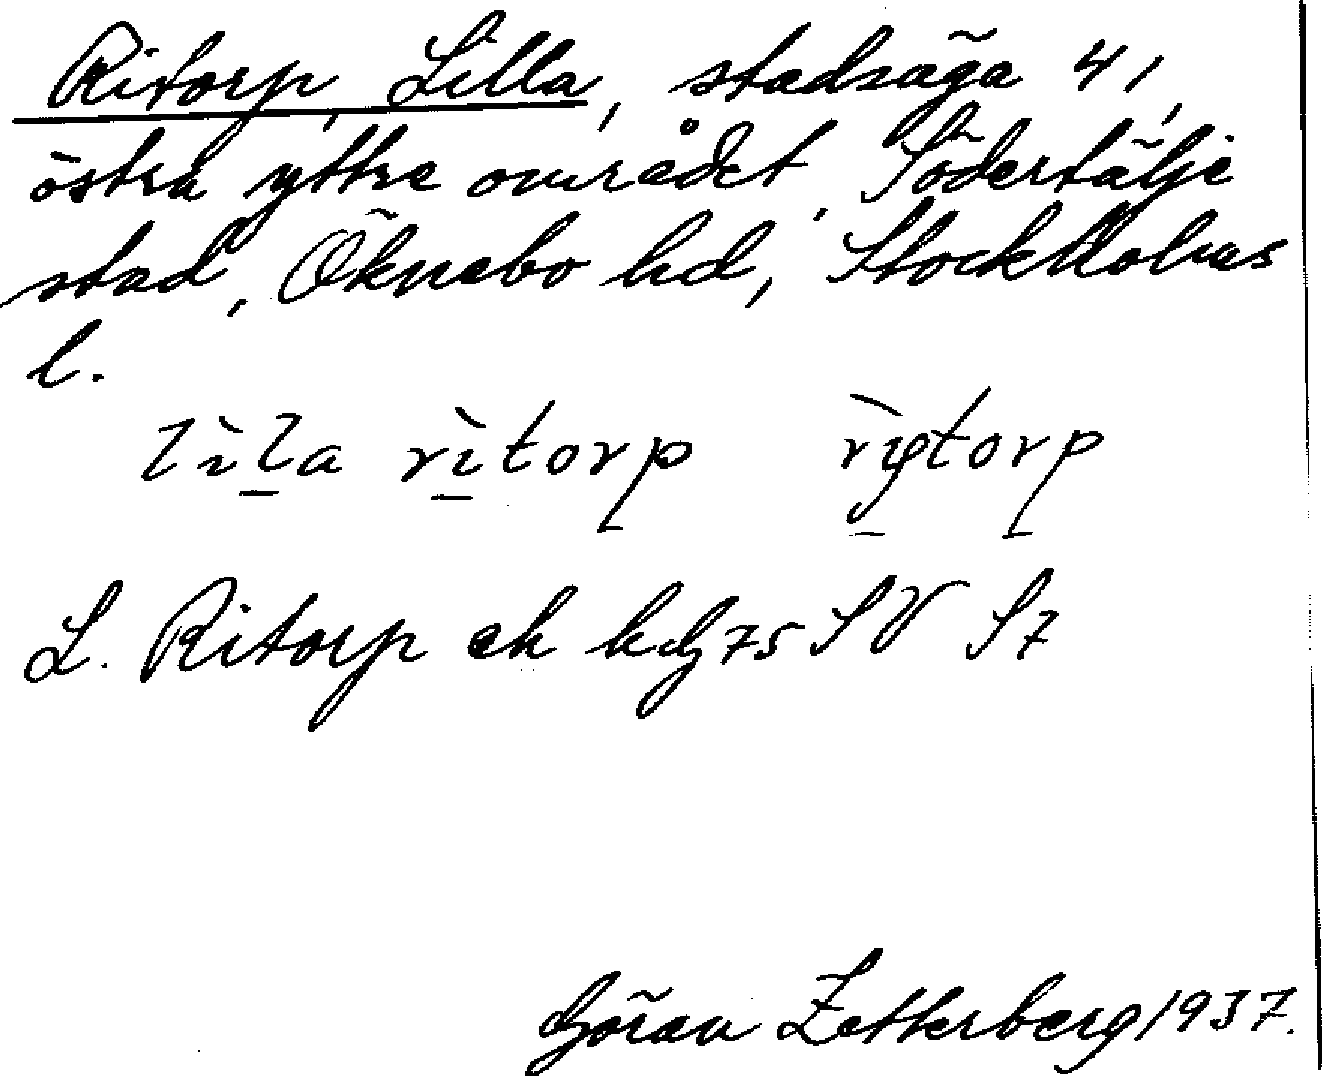 Ritorp, Lilla, stadsäga 41,
östra yttre området, Södertälje
stad, Öknebo hd, Stockholms
l.
lìla rìtorp rìgtorp
L. Ritorp ek kbl 75 SV S7
Göran Zetterberg 1937.